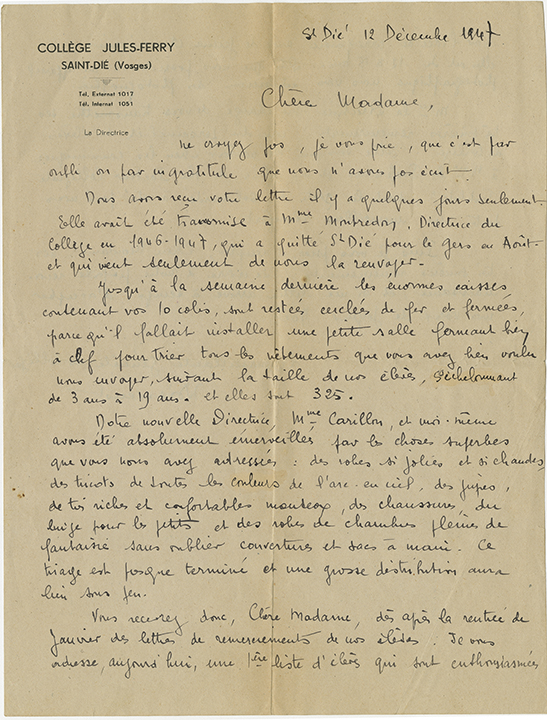 COLLÈGE JULES-FERRY
SAINT-DIÉ (Vosges)
Tél. Externat 1017
Tél. Internat 1051
La Directrice
St Dié 12 Décembre 1947
Chère Madame,
ne croyez pas, je vous prie, que c'est par
oubli ou par ingratitude que nous n'avons pas écrit.
Nous avons reçu votre lettre il y a quelques jours seulement.
Elle avait été transmise à Mme Montredon, Directrice du
Collège en 1946-1947, qui a quitté St Dié pour le Gers en Août
et qui vient seulement de nous la renvoyer.
Jusqu'à la semaine dernière les énormes caisses
contenant vos 10 colis, sont restées cerclées de fer et fermées,
parce qu'il fallait installer une petite salle fermant bien
à clef pour trier tous les vêtements que vous avez bien voulu
nous envoyer, suivant la taille de nos élèves, s'échelonnant
de 3 ans à 19 ans. et elles sont 325.
Notre nouvelle Directrice, Mme Carillon, et moi-même
avons été absolument émerveillées par les choses superbes
que vous nous avez adressées : des robes si jolies et si chaudes,
des tricots de toutes les couleurs de l'arc-en-ciel, des jupes,
de très riches et confortables manteaux, des chaussures, du
linge pour les petits et des robes de chambres pleines de
fantaisie sans oublier couvertures et sacs à main. Ce
triage est presque terminé et une grosse distribution aura
lieu sous peu.
Vous recevrez donc, Chère Madame, dès après la rentrée de
Janvier des lettres de remerciements de nos élèves. Je vous
adresse, aujourd'hui, une 1ère liste d'élèves qui sont enthousiasmées